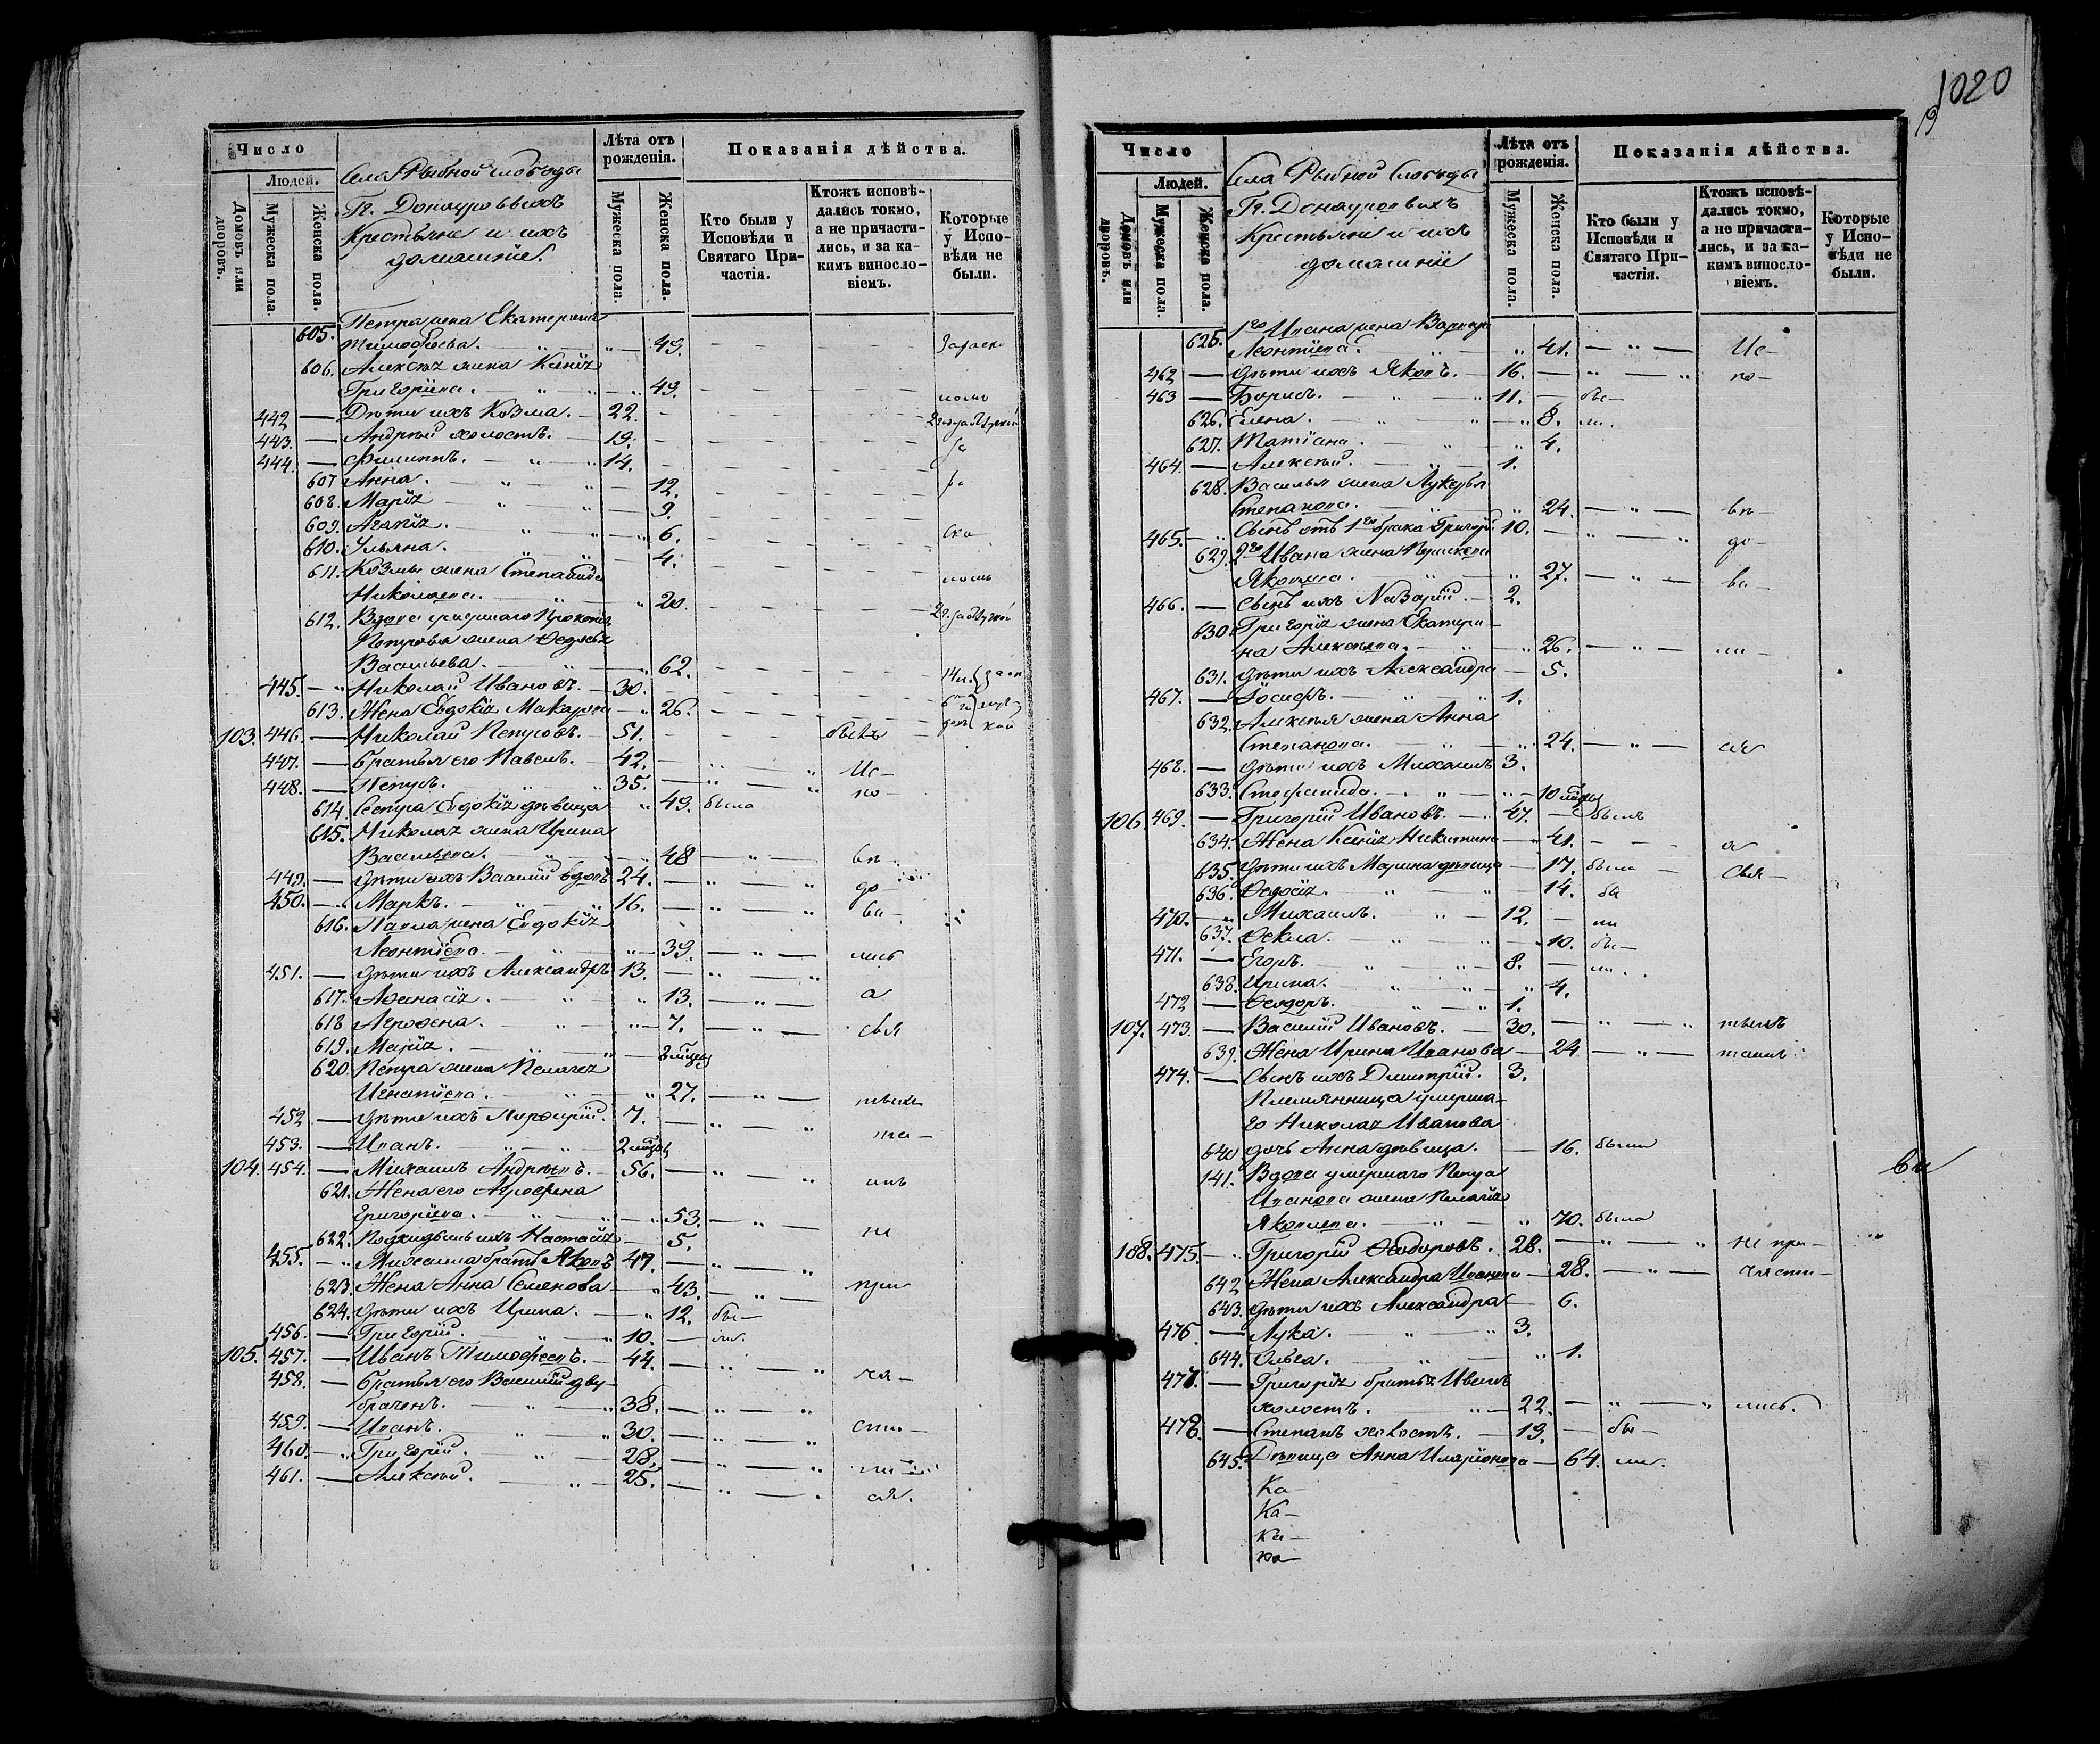 Число
Людей.
Домовъ или дворовъ.
Мужеска пола.
Женска пола.
Села Рыбной Слободы
Гг. Донауровыхъ
Крестьяне и ихъ
домашніе.
Лѣта отъ рожденія.
Мужеска пола.
Женска пола.
Показанія дѣйства.
Кто были у Исповѣди и Святаго Причастія.
Ктожъ исповѣдались токмо, а не причастились, и за какимъ винословіемъ.
Которые у Исповѣди не были.
605. Петра жена Екатерина
Тимофеева. 49.
606. Алексѣя жена Ксенія
Григоріева. 49.
442 — Дѣти ихъ Козма. — 22.
443. — Андрей холостъ. — 19.
444. — Филиппъ. — 14.
607 Анна. — 12.
608. Марія — 9.
609. Агапія. — 6.
610. Ульяна. — 4.
611. Козмы жена Степанида
Николаева. 20.
612. Вдова умершаго Прокопія
Петрова жена Ѳедосья
Васильева. 62.
445. — Николай Ивановъ. — 30.
613. Жена Евдокія Макарова — 26.
103. 446. — Николай Петровъ. — 51. быхъ
447. — Братья его Павелъ. — 42. — Ис—
448. — Петръ. 35. — по—
614. Сестра Евдокія дѣвица 49. была
615. Николая жена Ирина
Васильева. 48 — вѣ—
449. — Дѣти ихъ Василій вдовъ 24. — до—
450. — Маркъ. 16. — ва—
616. Павла жена Евдокія
Леонтіева. 39. — лись
451. — Дѣти ихъ Александръ 13.
617. Аѳанасія. 13. — а
618 Агроѳена. 7. — свя
619. Марія. — 3 мѣсяц
620. Петра жена Пелагея
Игнатіева. 27.
452 — Дѣти ихъ Порфирій. 7. — та—
453. — Иванъ. 2 мѣсяц
104. 454. — Михаилъ Андреевъ. — 56.
621. Жена его Агрофена
Григоріева. — 53. — не
622. Подкидышъ ихъ Настасія 5.
455. — Михаила братъ Яковъ 47. — при
623. Жена Анна Семенова — 43.
624. Дѣти ихъ Ирина. — 12. бы—
456. — Григорій. 10. — ли.
105. 457. — Иванъ Тимофеевъ. — 44. — ча—
458. — Братья его Василій дву
браченъ. 38. — сти—
459. — Иванъ. 30.
460. — Григорій. 28. — ли
461. — Алексѣй. 25. — ся.
1020
19
Число
Людей.
Домовъ или дворовъ.
Мужеска пола.
Женска пола.
Села Рыбной Слободы
Гг. Донауровыхъ
Крестьяне и ихъ
домашніе
Лѣта отъ рожденія.
Мужеска пола.
Женска пола.
Показанія дѣйства.
Кто были у Исповѣди и Святаго Причастія.
Ктожъ исповѣдались токмо, а не причастились, и за какимъ винословіемъ.
Которые у Исповѣди не были.
625. 1го Ивана жена Варвара
Леонтіева. 41. — Ис—
462 — Дѣти ихъ Яковъ. — 16. — по—
463 — Борисъ. 11. — бы—
626. Елена. 8. ли.
627. Татіана. 4.
464. — Алексѣй. 1.
628. Василья жена Лукерья
Степанова. 24. — вѣ—
465. — Сынъ отъ 1го брака Григорій 10. — до—
629. 2го Ивана жена Прасковья
Яковлева. 27. — ва—
466. — Сынъ ихъ Назарій. — 2.
630. Григорія жена Екатери—
на Алексѣева. 26. — ли—
631. Дѣти ихъ Александра — 5.
467. — Іосифъ. 1.
632. Алексѣя жена Анна
Степанова. 24. — ся
468. — Дѣти ихъ Михаилъ 3.
633. Стефанида. 10 мѣсяц
106. 469. — Григорій Ивановъ. — 47. — былъ
634. Жена Ксенія Никитина — 41. — а
635. Дѣти ихъ Марина дѣвица — 17. была — Свя—
636. Ѳедосія. — 14. бы
470. — Михаилъ. 12. — ли
637. Ѳекла. — 10. бы—
471. — Егоръ. 8. — ли.
638. Ирина. 4.
472 — Ѳеодоръ. 1.
107. 473. — Василій Ивановъ. — 30.
639. Жена Ирина Иванова — 24
474. — Сынъ ихъ Дмитрій. 3.
Племянница умерша—
го Николая Иванова
640 дочь Анна дѣвица. — 16. была
141. Вдова умершаго Петра
Иванова жена Пелагія
Яковлева. 70. была
108. 475. — Григорій Ѳеодоровъ. 28. — не при—
642 Жена Александра Иванова — 28. — части—
643. Дѣти ихъ Александра — 6.
476 — Лука. 3.
644. Ольга. 1.
477. — Григорія братья Иванъ
холостъ. 22. — лись.
478. — Степанъ холостъ. — 19. — бы—
645. Дѣвица Анна Иларіонова — 64. ли.
Ка—
Ка—
Ка—
ка—